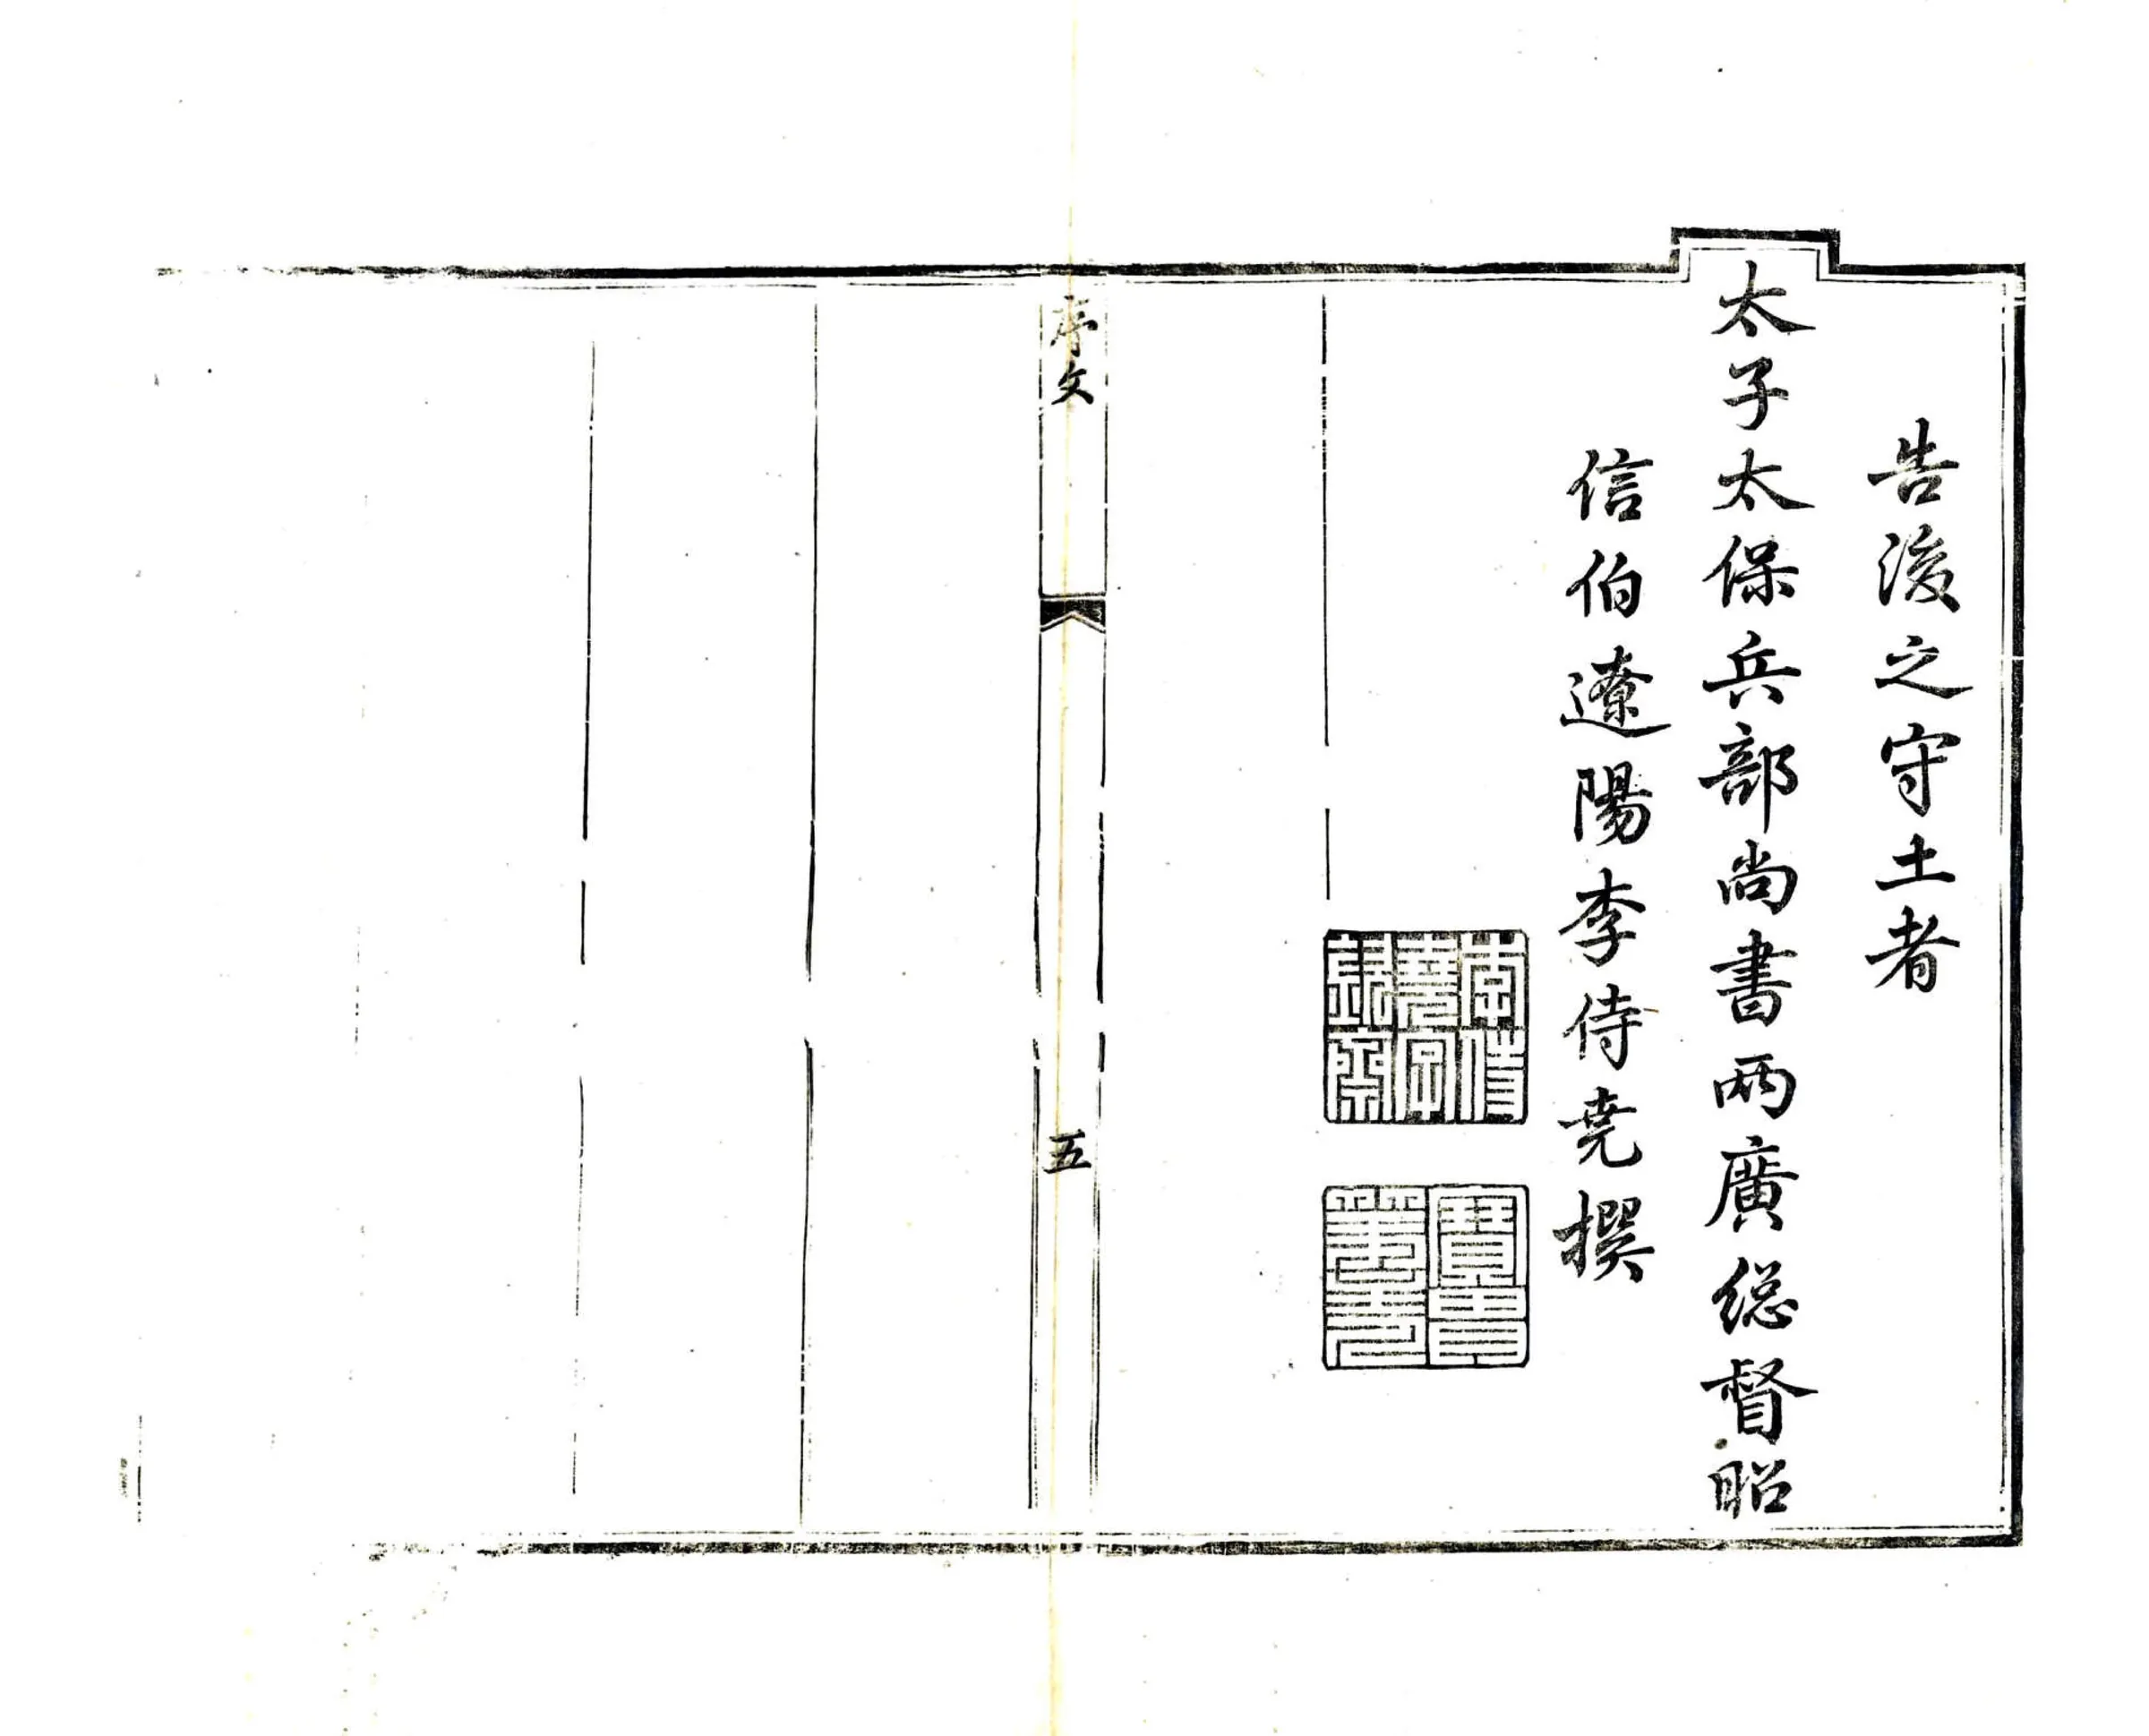 告後之守土者
太子太保兵部尚書兩廣総督昭
信伯遼陽李侍尭撰
序文
五